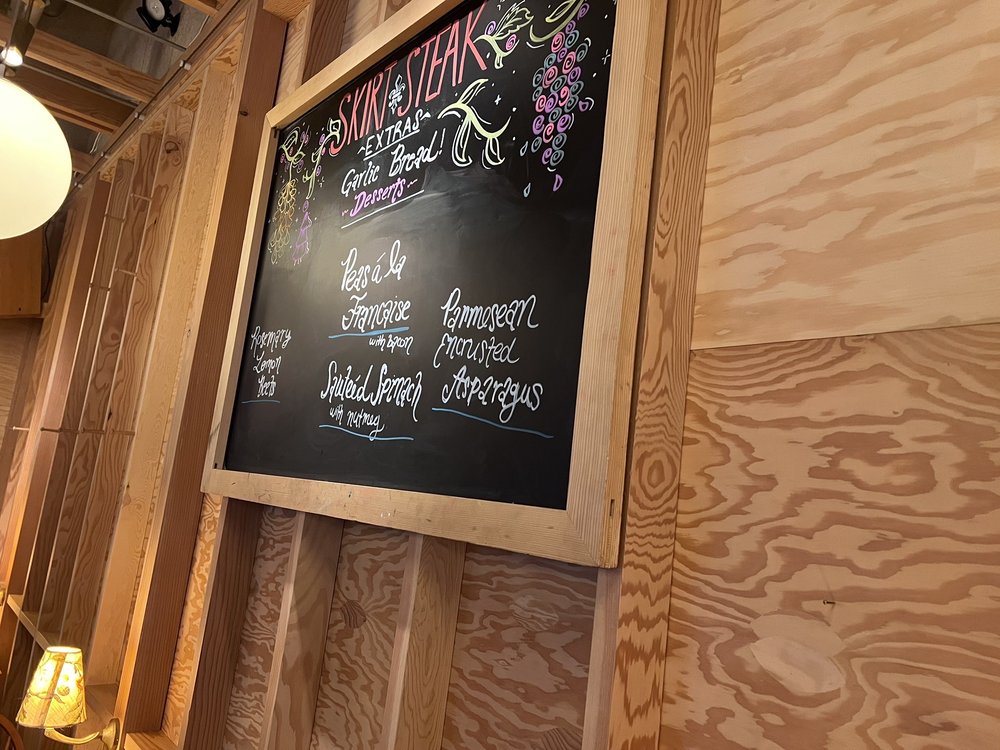 SKIRT STEAK
~EXTRAS~
Garlic Bread!
~Desserts~
Peas á la
Française
with bacon
Rosemary
Lemon
Beets
Sautéed Spinach
with nutmeg
Parmesean
Encrusted
Asparagus